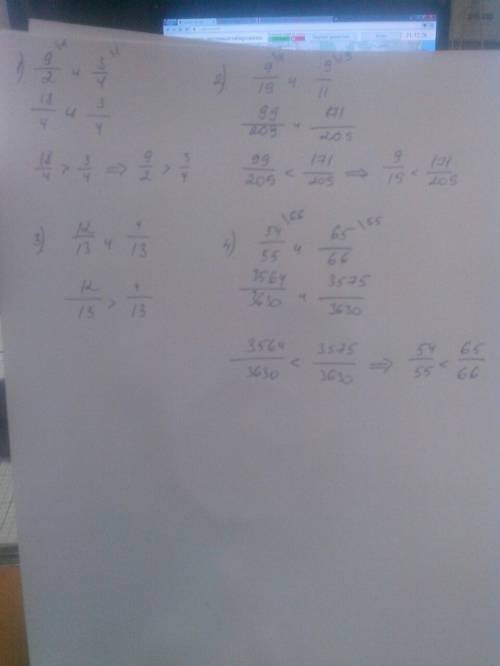 1) 9/2 \2 и 3/4 \1
18/4 и 3/4
18/4 > 3/4 ⇒ 9/2 > 3/4
2) 9/19 и 9/11
99/209 и 171/209
99/209 < 171/209 ⇒ 9/19 < 171/209
3) 12/13 и 4/13
12/13 > 4/13
4) 54/55 \66 и 65/66 \55
3564/3630 и 3575/3630
3564/3630 < 3575/3630 ⇒ 54/55 < 65/66